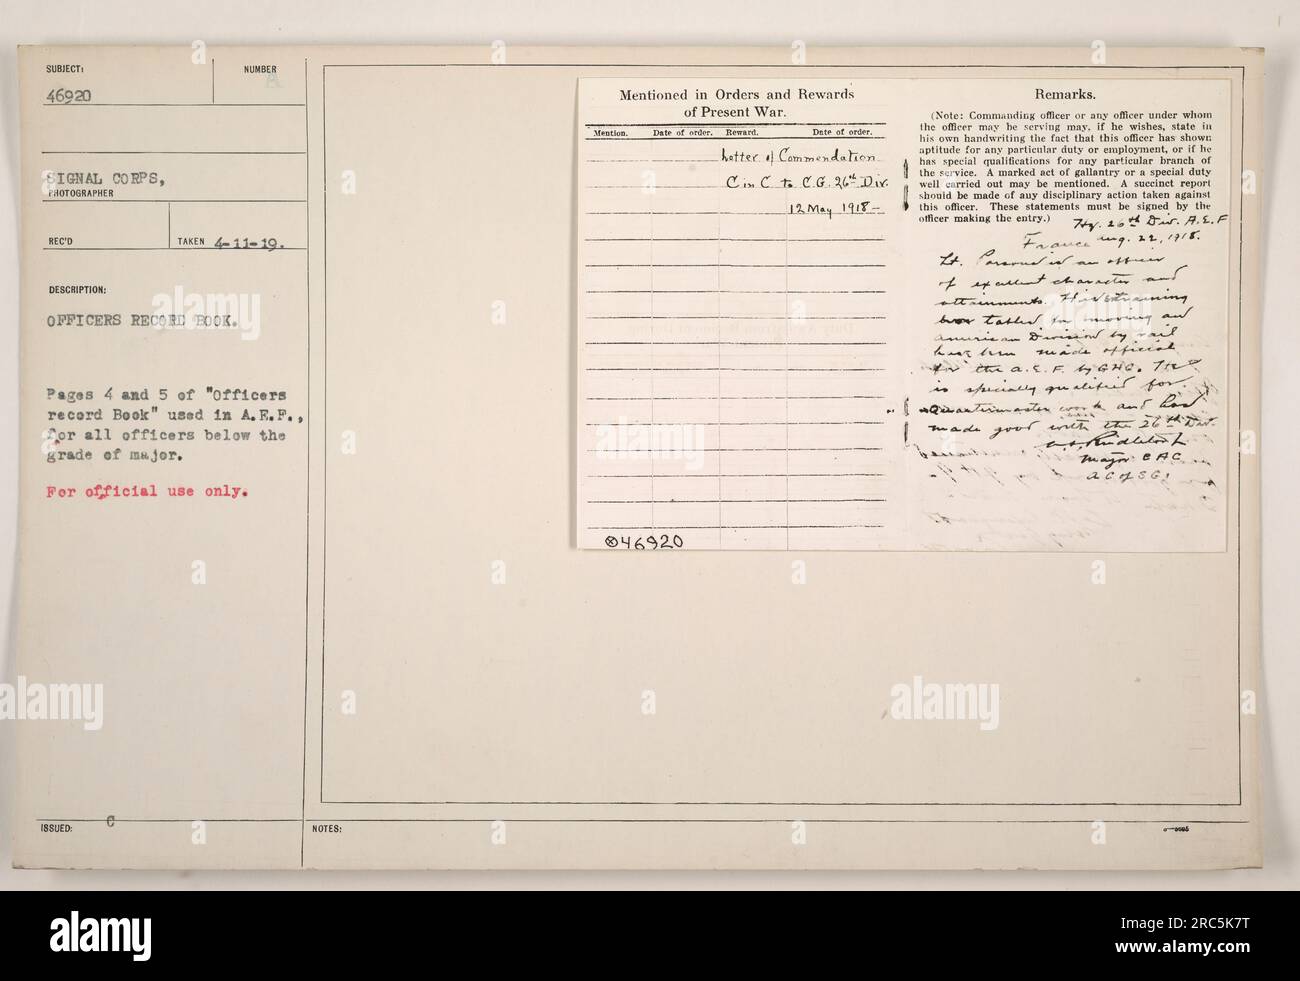 SUBJECT:
NUMBER
A
46920
SIGNAL CORPS,
PHOTOGRAPHER
REC'D
TAKEN 4-11-19.
DESCRIPTION:
OFFICERS RECORD BOOK.
Pages 4 and 5 of "Officers
record Book" used in A.E.F.,
for all officers below the
grade of major.
For official use only.
ISSUED: C
NOTES:
Mentioned in Orders and Rewards
of Present War.
Mention. Date of order. Reward. Date of order.
Letter of Commendation
C in C to C G. 26th Div.
12 May 1918-
46920
Remarks.
(Note: Commanding officer or any officer under whom
the officer may be serving may, if he wishes, state in
his own handwriting the fact that this officer has shown
aptitude for any particular duty or employment, or if he
has special qualifications for any particular branch of
the service. A marked act of gallantry or a special duty
well carried out may be mentioned. A succinct report
should be made of any disciplinary action taken against
this officer. These statements must be signed by the
officer making the entry.)
Hq. 26th Div. A.E.F
France Aug. 22, 1918.
Lt. Parsons is an officer
of excellent character and
attainments. His training
tables for moving an
American Division by rail
have been made official
for the A.E.F. by GHQ. He
is specially qualified for
Quartermaster work and has
made good with the 26th Div.
Major CAC
A C of S G1
alamy
alamy
alamy
Image ID: 2RC5K7T
www.alamy.com